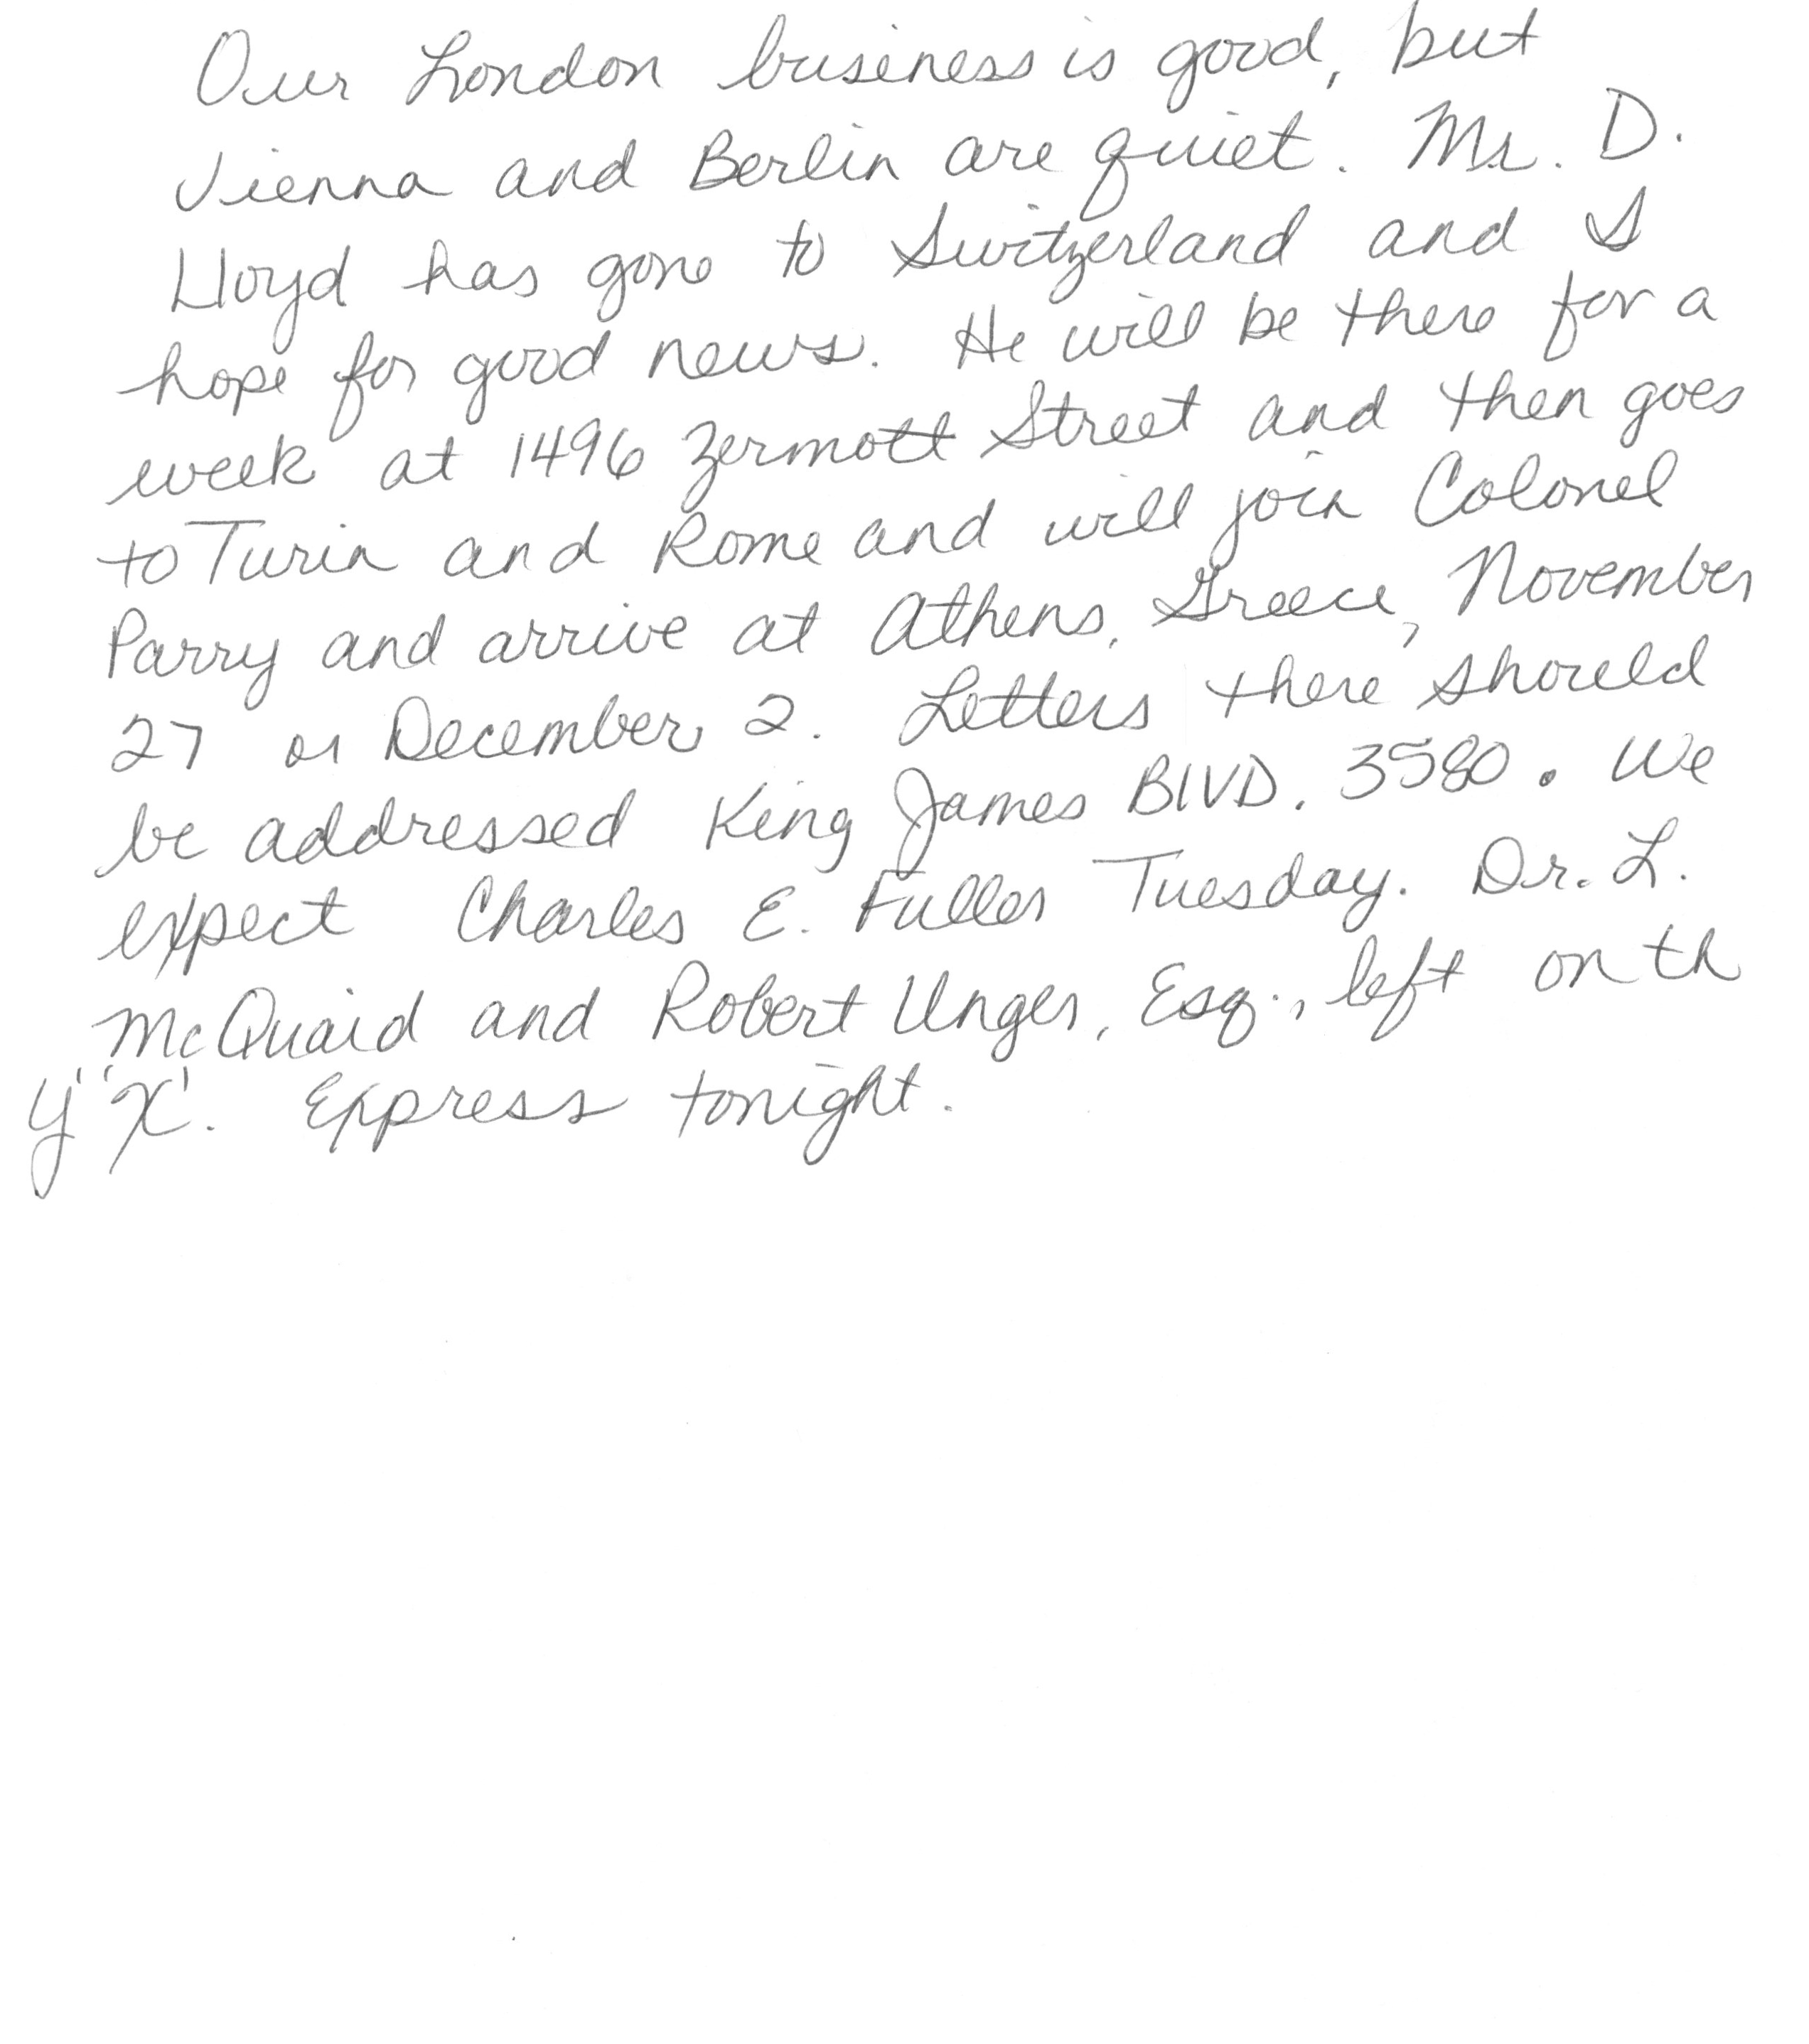 Our London business is good, but
Vienna and Berlin are quiet. Mr. D.
Lloyd has gone to Switzerland and I
hope for good news. He will be there for a
week at 1496 Zermott Street and then goes
to Turin and Rome and will join Colonel
Parry and arrive at Athens, Greece, November
27 or December 2. Letters there should
be addressed King James BLVD. 3580. We
expect Charles E. Fuller Tuesday. Dr. L.
McQuaid and Robert Unger, Esq., left on th
Y' 'X'. Express tonight.